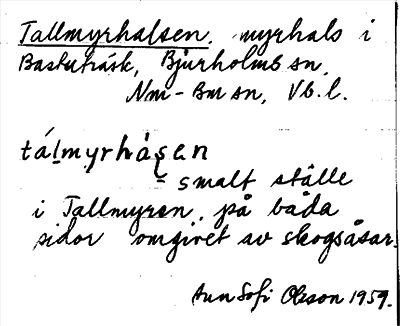 Tallmyrhalsen. myrhals i
Bastuträsk, Bjurholms sn,
Nm-Bm sn, Vb. l.
tálmyrhàsen
smalt ställe
i Tallmyren, på båda
sidor omgivet av skogsåsar.
Ann Sofi Olsson 1959.